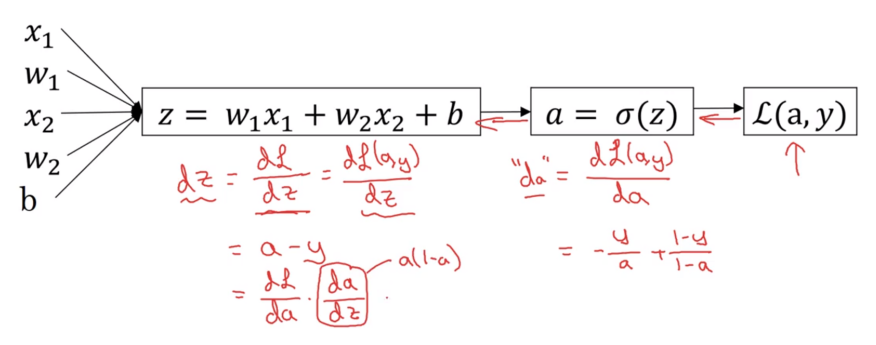 x₁
w₁
x₂
w₂
b
z = w₁x₁ + w₂x₂ + b
a = σ(z)
ℒ(a, y)
dz = dℒ/dz = dℒ(a,y)/dz
= a - y
= dℒ/da · da/dz .
a(1-a)
"da" = dℒ(a,y)/da
= - y/a + 1-y/1-a